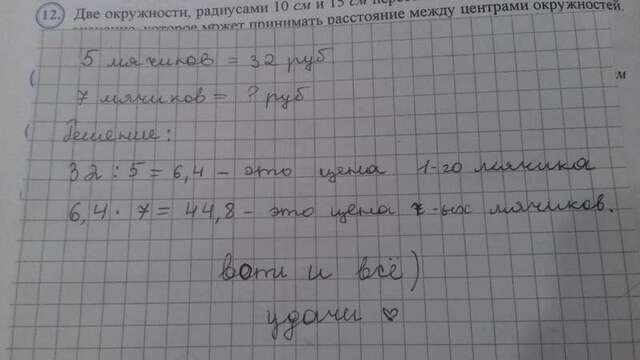 12. Две окружности, радиусами 10 см и 15 см
которое может принимать расстояние между центрами окружностей.
5 мячиков = 32 руб
м
7 мячиков = ? руб
Решение:
32 : 5 = 6,4 - это цена 1-го мячика
6,4 · 7 = 44,8 - это цена 7-ых мячиков.
воти и всё)
удачи ♡